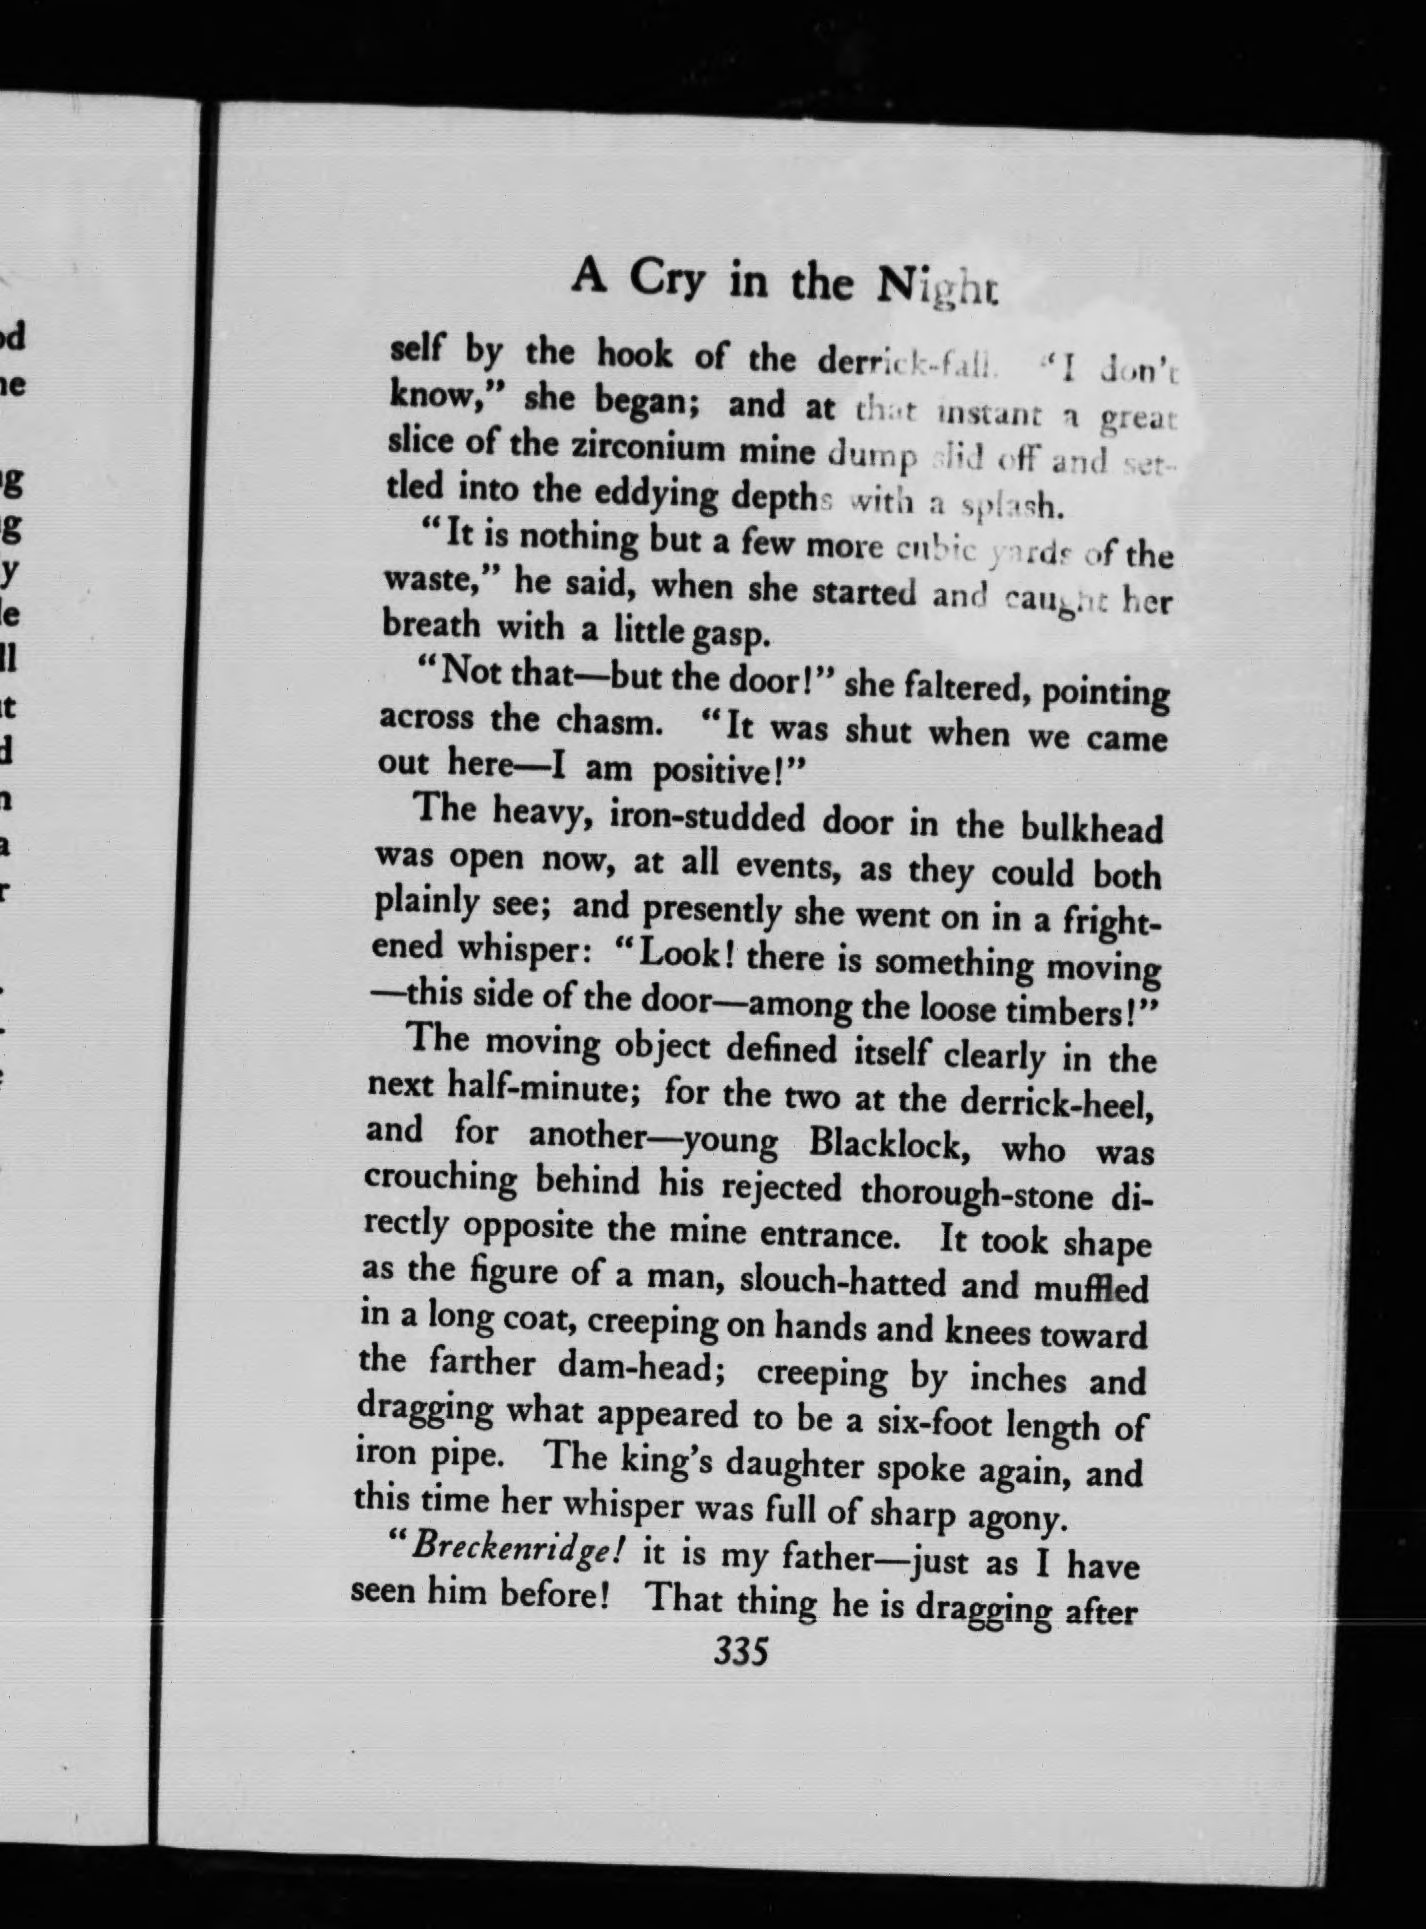 A Cry in the Night
self by the hook of the derrick-fall. “I don’t
know,” she began; and at that instant a great
slice of the zirconium mine dump slid off and set-
tled into the eddying depths with a splash.
“It is nothing but a few more cubic yards of the
waste,” he said, when she started and caught her
breath with a little gasp.
“Not that—but the door!” she faltered, pointing
across the chasm. “It was shut when we came
out here—I am positive!”
The heavy, iron-studded door in the bulkhead
was open now, at all events, as they could both
plainly see; and presently she went on in a fright-
ened whisper: “Look! there is something moving
—this side of the door—among the loose timbers!”
The moving object defined itself clearly in the
next half-minute; for the two at the derrick-heel,
and for another—young Blacklock, who was
crouching behind his rejected thorough-stone di-
rectly opposite the mine entrance. It took shape
as the figure of a man, slouch-hatted and muffled
in a long coat, creeping on hands and knees toward
the farther dam-head; creeping by inches and
dragging what appeared to be a six-foot length of
iron pipe. The king’s daughter spoke again, and
this time her whisper was full of sharp agony.
“Breckenridge! it is my father—just as I have
seen him before! That thing he is dragging after
335